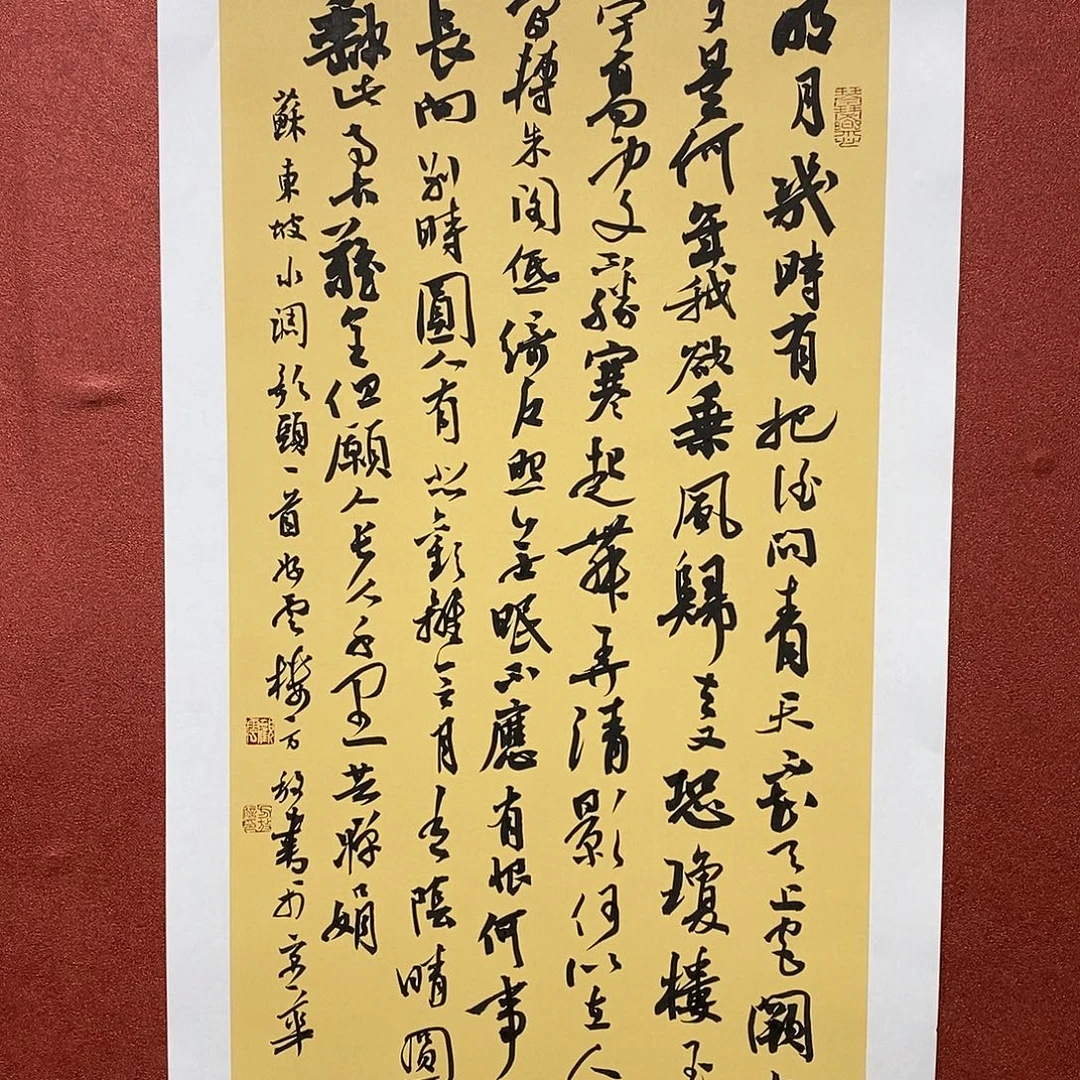 明月幾時有把酒問青天不知天上宮闕
夕是何年我欲乘風歸去又恐瓊樓玉
宇高處不勝寒起舞弄清影何似在人
轉朱閣低綺戶照無眠不應有恨何事
長向別時圓人有悲歡離合月有陰晴圓
缺此事古難全但願人長久千里共嬋娟
蘇東坡水調歌頭一首 樓方放書於京華